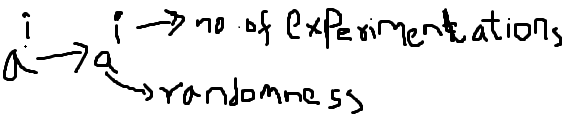 a^i → a^i → no of experimentations
→ randomness